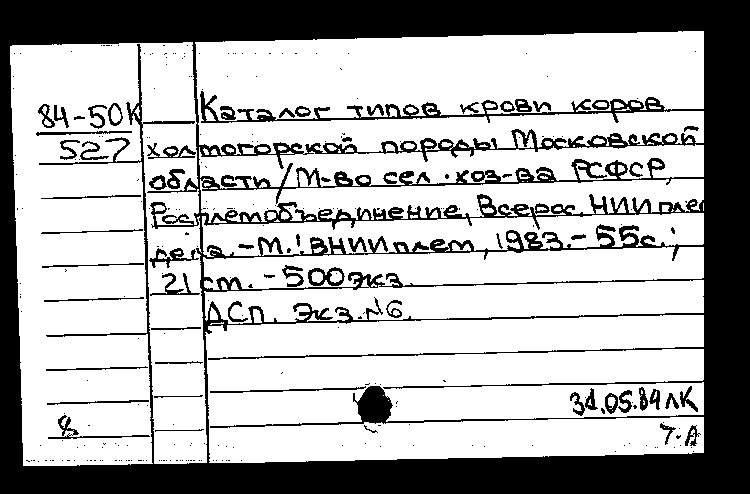 84-50К
527
Каталог типов крови коров
холмогорской породы Московской
области/М-во сел.хоз-ва РСФСР,
Росплемобъединение, Всерос. НИИ плем
дела.-М.:ВНИИплем, 1983.-55с.;
21 cm. -500экз.
ДСП. Экз.№6.
8
31.05.84 ЛК
Т-А